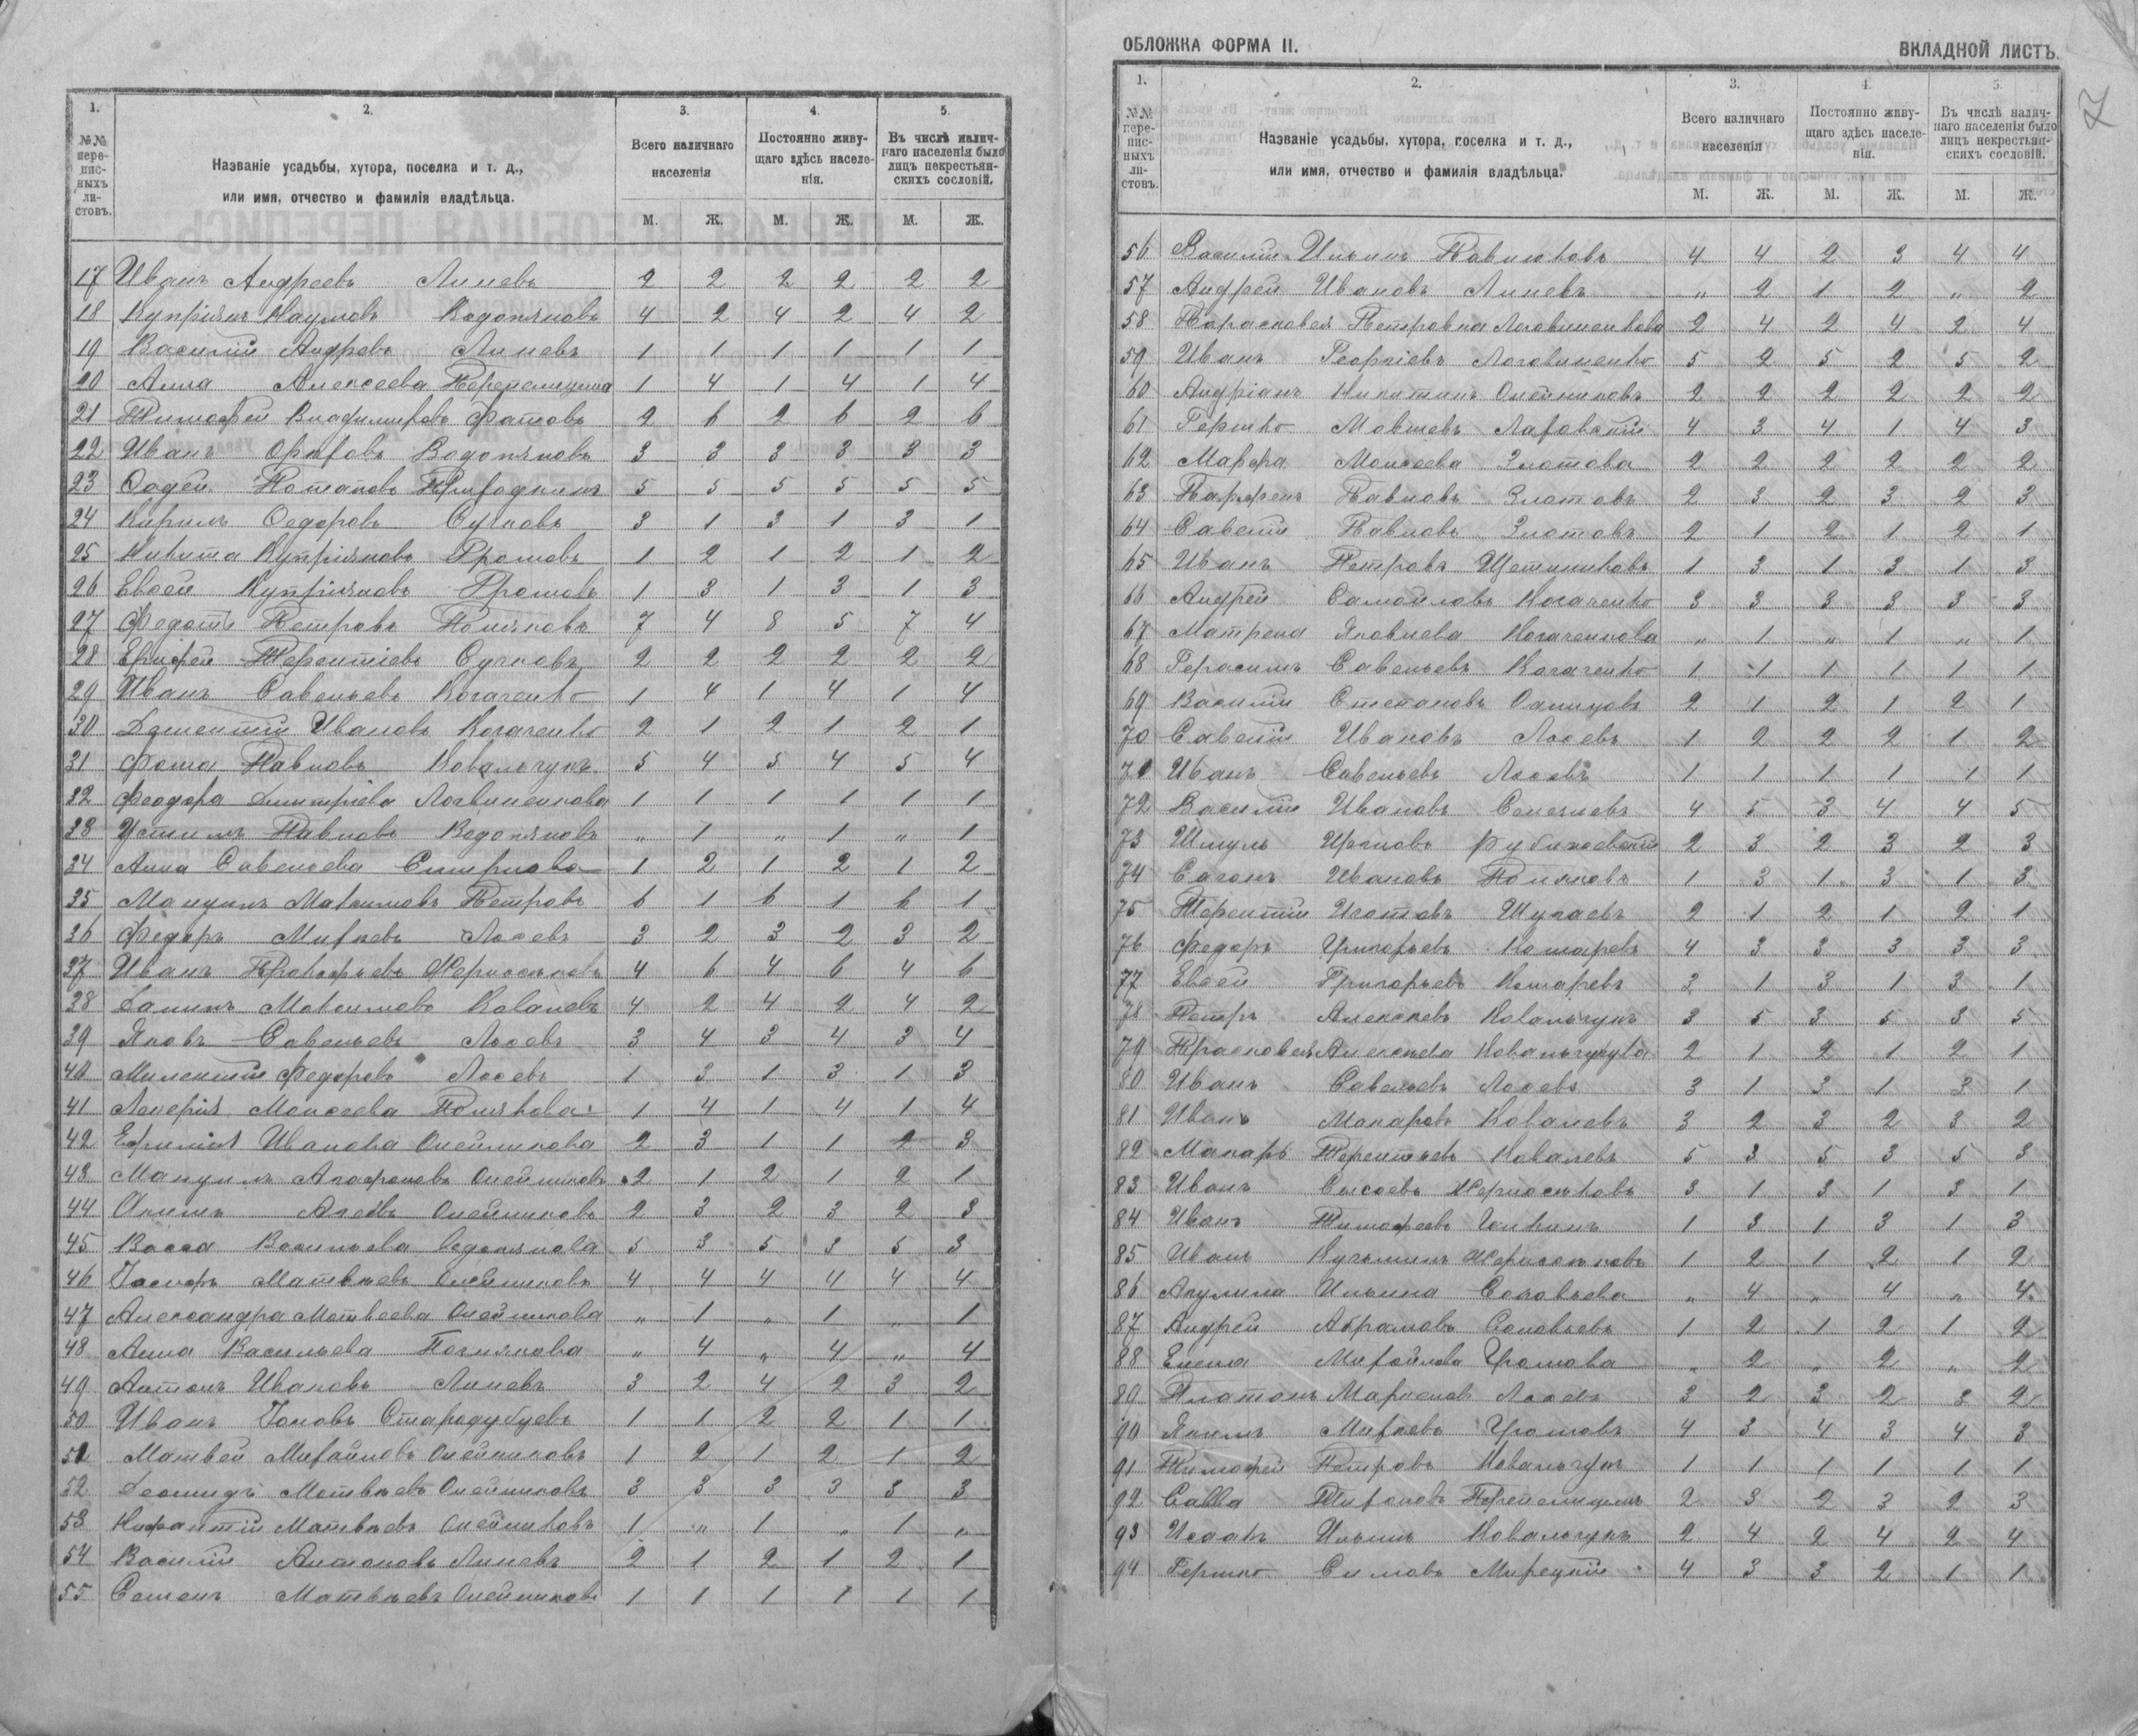 1. 2. 3. 4. 5.
№№ переписныхъ листовъ. Названіе усадьбы, хутора, поселка и т. д., или имя, отчество и фамилія владѣльца. Всего наличнаго населенія Постоянно живущаго здѣсь населенія. Въ числѣ наличнаго населенія было лицъ некрестьянскихъ сословій.
М. Ж. М. Ж. М. Ж.
17 Иванъ Андреевъ Линевъ 2 2 2 2 2 2
18 Купріянъ Наумовъ Водопяновъ 4 2 4 2 4 2
19 Василій Андревъ Линевъ 1 1 1 1 1 1
20 Анна Алексеева Перепелицина 1 4 1 4 1 4
21 Тимофей Владимировъ Фатовъ 2 6 2 6 2 6
22 Иванъ Водопяновъ 3 3 3 3 3 3
23 Потаповъ 5 5 5 5 5 5
24 Кирилъ Федоровъ Сучковъ 3 1 3 1 3 1
25 Никита Купріяновъ Громовъ 1 2 1 2 1 2
26 Евсей Купріяновъ Громовъ 1 3 1 3 1 3
27 Федотъ Петровъ Поляковъ 7 4 8 5 7 4
28 Терентіевъ Сучковъ 2 2 2 2 2 2
29 Иванъ Савельевъ Косаченко 1 4 1 4 1 4
30 Дементій Ивановъ Косаченко 2 1 2 1 2 1
31 Фома Павловъ Ковальчукъ 5 4 5 4 5 4
32 Феодора Дмитріева Логвиненкова 1 1 1 1 1 1
33 Устимъ Павловъ Водопяновъ „ 1 „ 1 „ 1
34 Анна Савельева Смирнова 1 2 1 2 1 2
35 Мануилъ Максимовъ Петровъ 6 1 6 1 6 1
36 Федоръ Михеевъ Лосевъ 3 2 3 2 3 2
37 Иванъ Прокофьевъ Жерносѣковъ 4 6 4 6 4 6
38 Данилъ Максимовъ Ковалевъ 4 2 4 2 4 2
39 Яковъ Савельевъ Лосевъ 3 4 3 4 3 4
40 Милентій Федоровъ Лосевъ 1 3 1 3 1 3
41 Моисеева Полякова 1 4 1 4 1 4
42 Ефимія Иванова Олейникова 2 3 1 1 2 3
43 Мануилъ Агафоновъ Олейниковъ 2 1 2 1 2 1
44 Акимъ Олейниковъ 2 3 2 3 2 3
45 Васса Васильева Водопянова 5 3 5 3 5 3
46 Іосифъ Матвѣевъ Олейниковъ 4 4 4 4 4 4
47 Александра Матвеева Олейникова „ 1 „ 1 „ 1
48 Анна Васильева „ 4 „ 4 „ 4
49 Антонъ Ивановъ Линевъ 3 2 4 2 3 2
50 Иванъ Іоновъ Стародубцевъ 1 1 2 2 1 1
51 Матвей Михайловъ Олейниковъ 1 2 1 2 1 2
52 Леонидъ Матвѣевъ Олейниковъ 3 3 3 3 3 3
53 Нифантій Матвѣевъ Олейниковъ 1 „ 1 „ 1 „
54 Василій Антоновъ Линевъ 2 1 2 1 2 1
55 Семенъ Матвѣевъ Олейниковъ 1 1 1 1 1 1
ОБЛОЖКА ФОРМА II. ВКЛАДНОЙ ЛИСТЪ.
7
1. 2. 3. 4. 5.
№№ переписныхъ листовъ. Названіе усадьбы, хутора, поселка и т. д., или имя, отчество и фамилія владѣльца. Всего наличнаго населенія Постоянно живущаго здѣсь населенія. Въ числѣ наличнаго населенія было лицъ некрестьянскихъ сословій.
М. Ж. М. Ж. М. Ж.
56 Василій Ильинъ Павлюковъ 4 4 2 3 4 4
57 Андрей Ивановъ Линевъ „ 2 1 2 „ 2
58 Парасковея Петровна Логвиненкова 2 4 2 4 2 4
59 Иванъ Георгіевъ Логвиненко 5 2 5 2 5 2
60 Андріанъ Никитинъ Олейниковъ 2 2 2 2 2 2
61 Гершко Мовшевъ 4 3 4 1 4 3
62 Марфа Моисеева Злотова 2 2 2 2 2 2
63 Парфенъ Павловъ Злотовъ 2 3 2 3 2 3
64 Савелій Павловъ Злотовъ 2 1 2 1 2 1
65 Иванъ Петровъ Щетинниковъ 1 3 1 3 1 3
66 Андрей Самойловъ Косаченко 3 3 3 3 3 3
67 Матрена Яковлева Косаченкова „ 1 „ 1 „ 1
68 Герасимъ Савельевъ Косаченко 1 1 1 1 1 1
69 Василій Степановъ 2 1 2 1 2 1
70 Савелій Ивановъ Лосевъ 1 2 2 2 1 2
71 Иванъ Савельевъ Лосевъ 1 1 1 1 1 1
72 Василій Ивановъ Селезневъ 4 5 3 4 4 5
73 Шмуль 2 3 2 3 2 3
74 Ивановъ Поляковъ 1 3 1 3 1 3
75 Терентій Шукаевъ 2 1 2 1 2 1
76 Федоръ Григорьевъ Комаревъ 4 3 3 3 3 3
77 Евсей Григорьевъ Комаревъ 3 1 3 1 3 1
78 Петръ Алексѣевъ Ковальчукъ 3 5 3 5 3 5
79 Прасковея Алексѣева 2 1 2 1 2 1
80 Иванъ Савельевъ Лосевъ 3 1 3 1 3 1
81 Иванъ Макаровъ Ковалевъ 3 2 3 2 3 2
82 Макаръ Терентьевъ Ковалевъ 5 3 5 3 5 3
83 Иванъ Сысоевъ Жерносѣковъ 3 1 3 1 3 1
84 Иванъ Тимофеевъ 1 3 1 3 1 3
85 Иванъ Кузьминъ Жерносѣковъ 1 2 1 2 1 2
86 Акулина Ильина Соловьева „ 4 „ 4 „ 4
87 Андрей Абрамовъ Соловьевъ 1 2 1 2 1 2
88 Михайлова Громова „ 2 „ 2 „ 2
89 Платонъ Лосевъ 3 2 3 2 3 2
90 Якимъ Михеевъ Громовъ 4 3 4 3 4 3
91 Тимофей Петровъ Ковальчукъ 1 1 1 1 1 1
92 Савва Тихоновъ Перепелицинъ 2 3 2 3 2 3
93 Исаакъ Ильинъ Ковальчукъ 2 4 2 4 2 4
94 Гершко Мирецкій 4 3 3 2 1 1